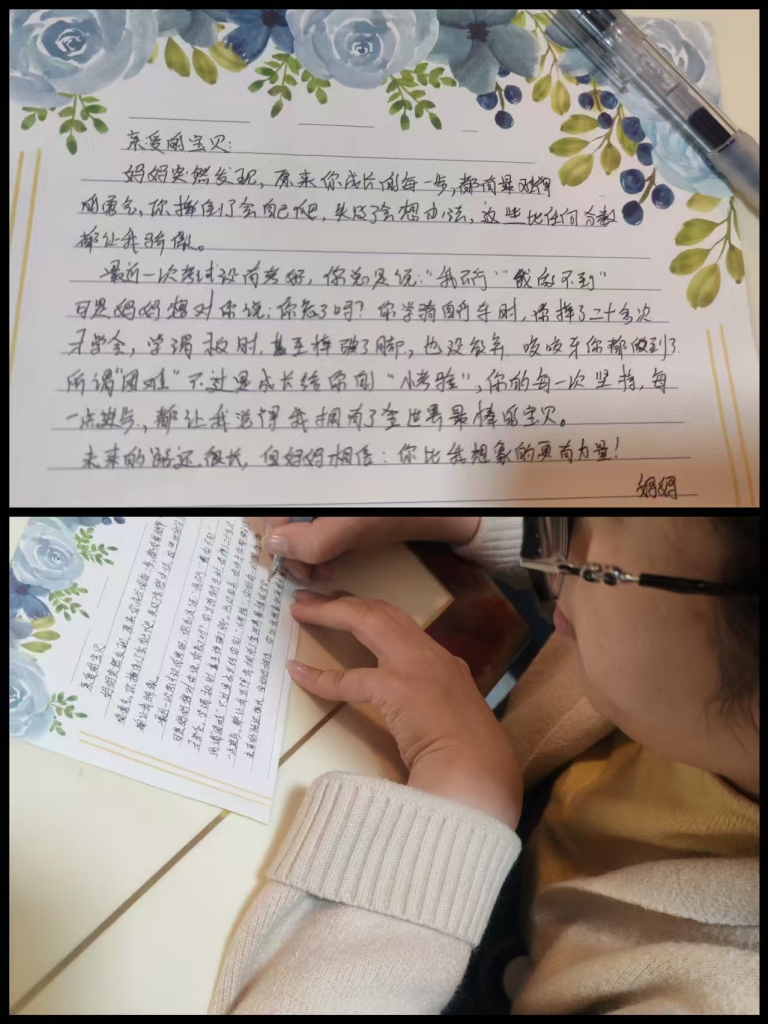 亲爱的宝贝：
妈妈突然发现，原来你成长的每一步，都有最难得
的勇气，你摔倒了会自己爬，失误了会想办法，这些比任何分数
都让我骄傲。
最近一次考试没有考好，你总是说："我不行""我做不到"
可是妈妈想对你说：你忘了吗？你学骑自行车时，你摔了二十多次
才学会，学滑板时，甚至摔破了脚，也没放弃，咬咬牙你都做到了
所谓"困难"不过是成长给你的"小考验"，你的每一次坚持，每
一点进步，都让我觉得我拥有了全世界最棒的宝贝。
未来的路还很长，但妈妈相信：你比我想象的更有力量！
妈妈